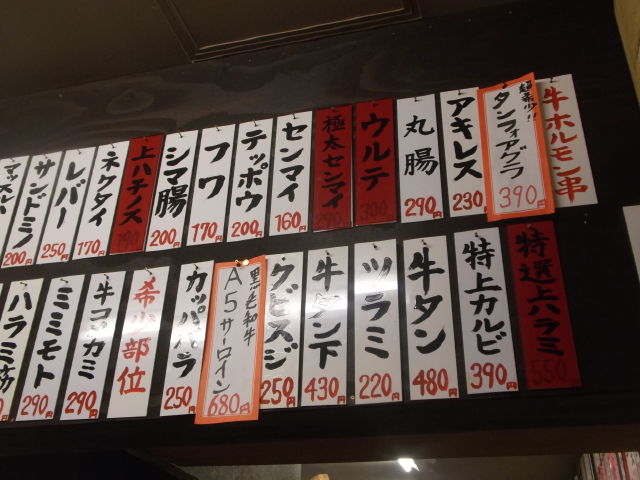 牛ホルモン串
超希少!!
タンフォアグラ
390円
アキレス
230円
丸腸
290円
ウルテ
300円
極太センマイ
290円
センマイ
160円
テッポウ
200円
フワ
170円
シマ腸
200円
上ハチノス
190円
ネクタイ
170円
レバー
250円
サンドミノ
200円
マッスル
特選上ハラミ
550円
特上カルビ
390円
牛タン
480円
ツラミ
220円
牛タン下
430円
クビスジ
250円
黒毛和牛
A5サーロイン
680円
カッパバラ
250円
希少部位
牛コメカミ
290円
ミミモト
290円
ハラミ筋